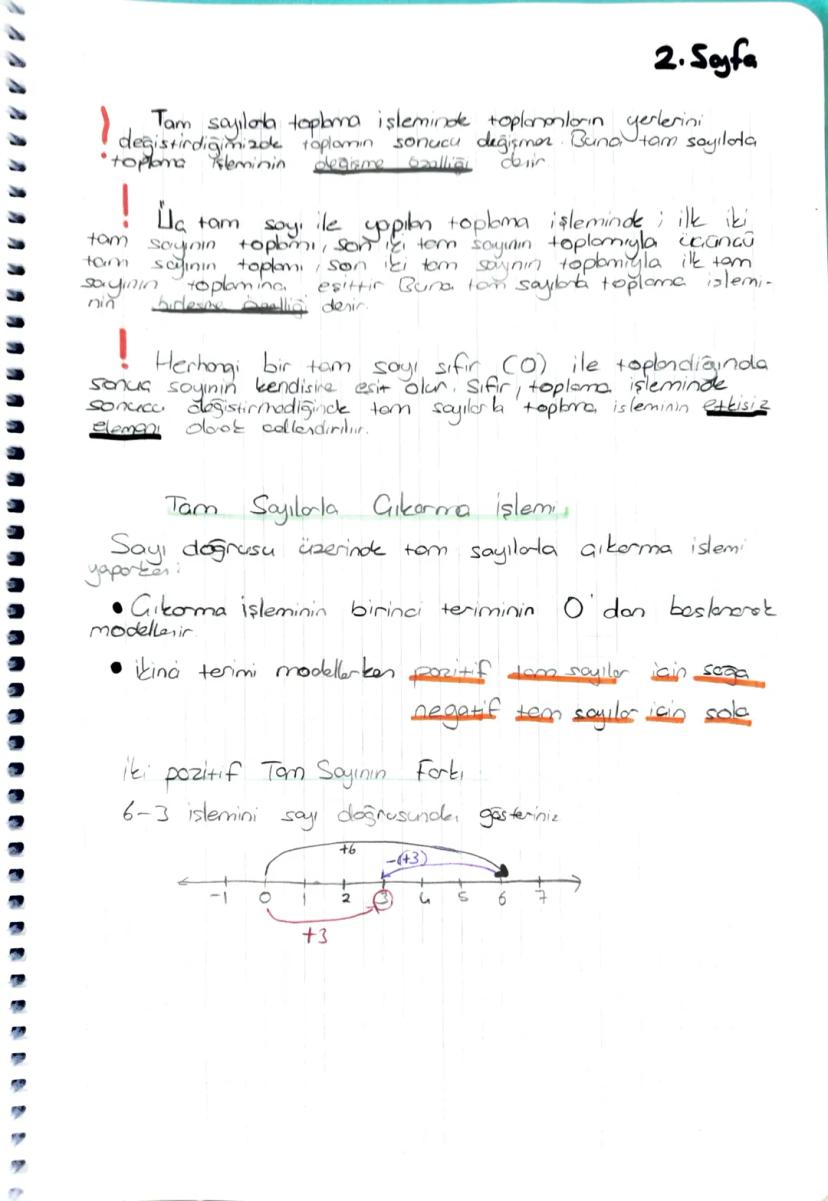 2. Sayfa
! Tam sayılarla toplama işleminde toplananların yerlerini
değiştirdiğimizde toplamın sonucu değişmez. Buna tam sayılarla
toplama işleminin değişme özelliği denir.
! Üç tam sayı ile yapılan toplama işleminde ; ilk iki
tam sayının toplamı, son iki tam sayının toplamıyla üçüncü
tam sayının toplamı, son iki tam sayının toplamıyla ilk tam
sayının toplamına eşittir Buna tam sayılarla toplama işlemi-
nin birleşme özelliği denir.
! Herhangi bir tam sayı sıfır (0) ile toplandığında
sonuç sayının kendisine eşit olur. Sıfır, toplama işleminde
sonucu değiştirmediğinde tam sayılarla toplama isleminin etkisiz
elemanı olarak adlandırılır.
Tam Sayılarla Çıkarma işlemi
Sayı doğrusu üzerinde tam sayılarla çıkarma islemi
yaparken:
• Çıkarma işleminin birinci teriminin 0'dan baslanarak
modellenir.
• ikinci terimi modellerken pozitif tam sayılar icin sağa
negatif tam sayılar icin sola
iki pozitif Tam Sayının Farkı
6-3 islemini sayı doğrusunda gösteriniz
+6
-(+3)
-1 0 1 2 3 4 5 6 7
+3